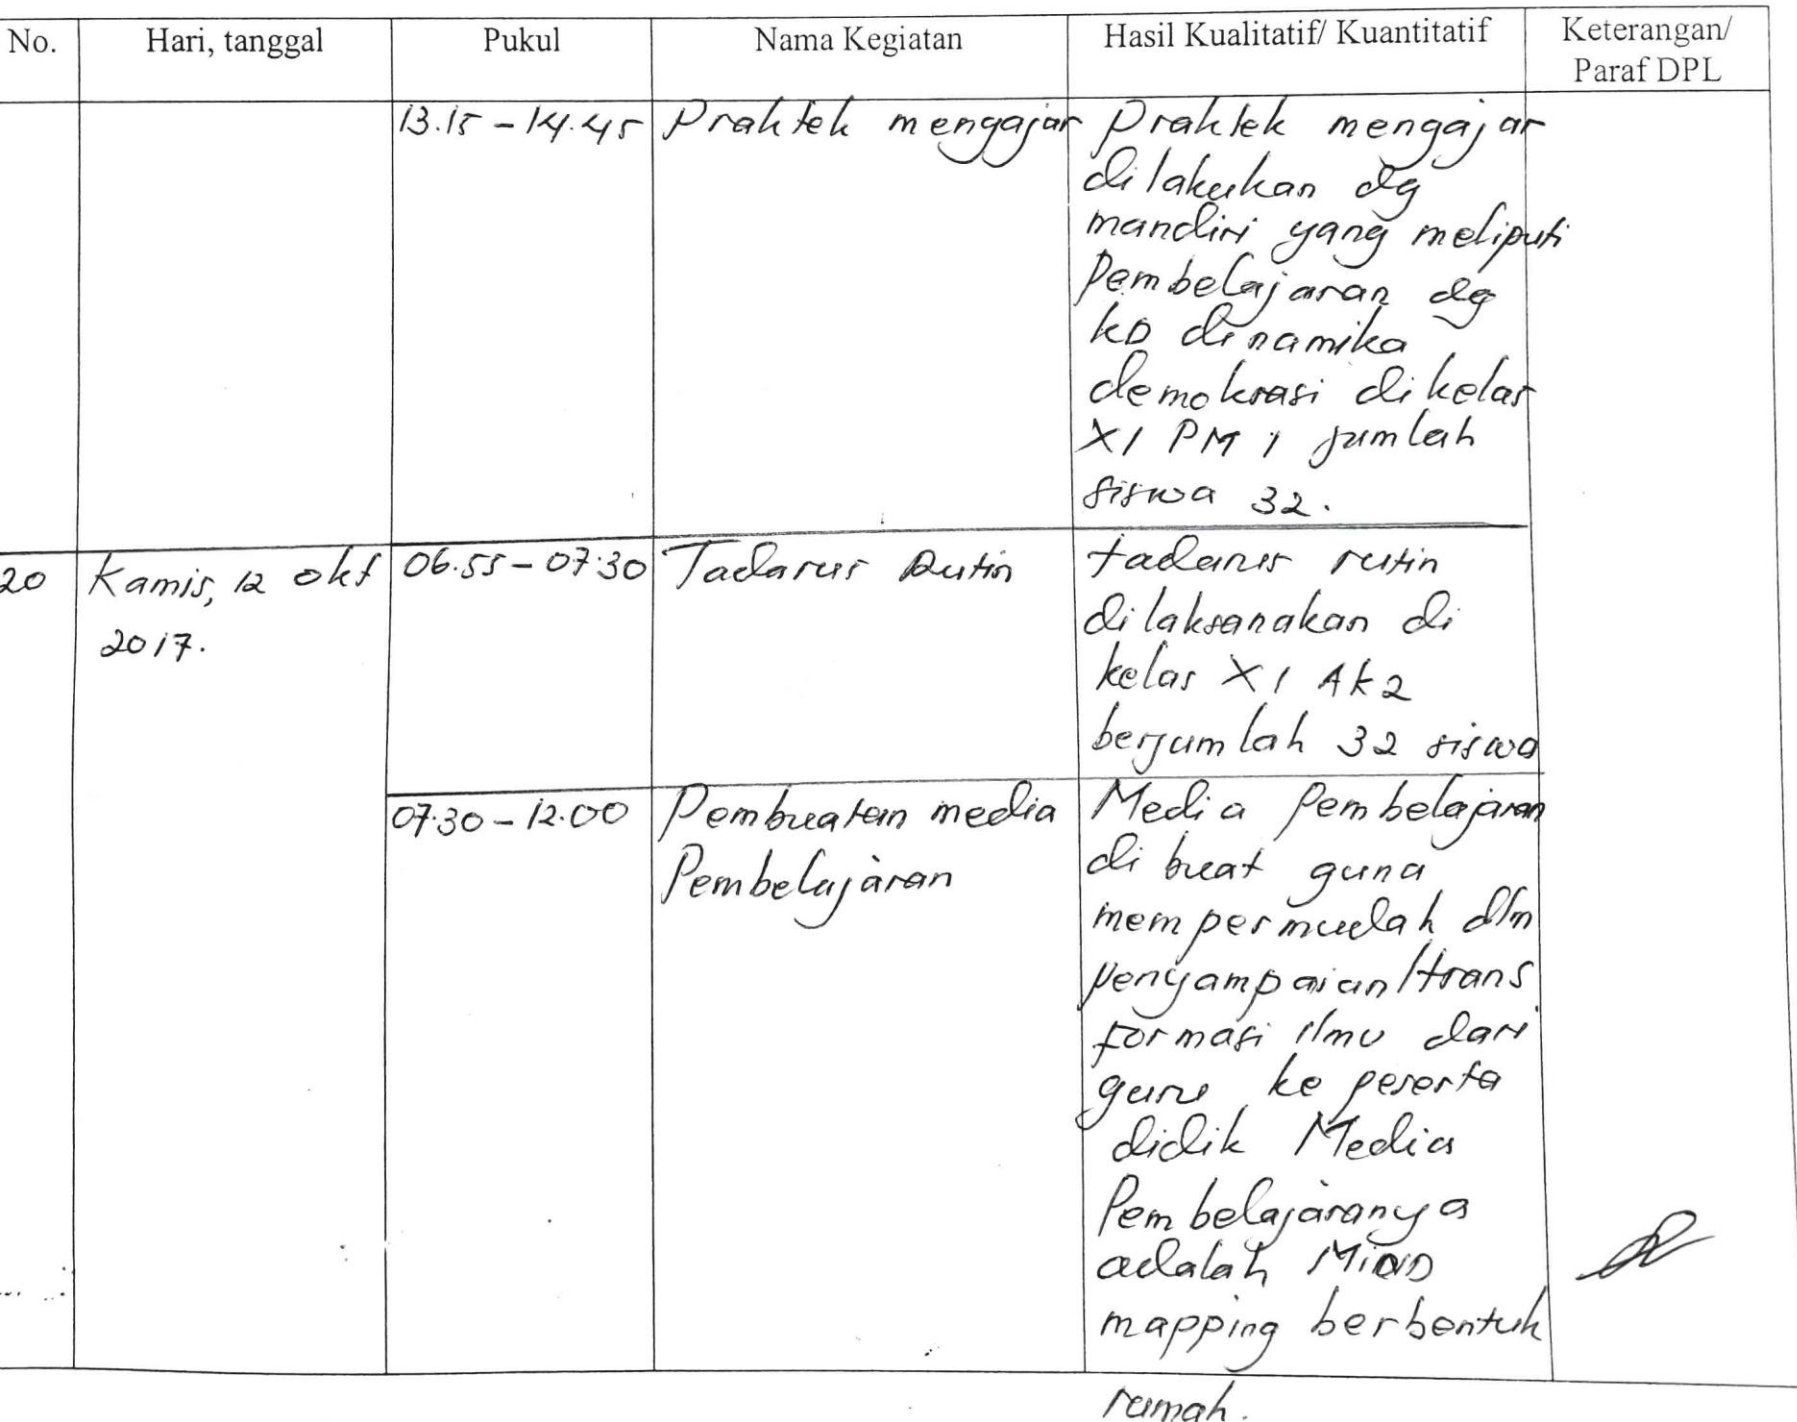 No. Hari, tanggal Pukul Nama Kegiatan Hasil Kualitatif/ Kuantitatif Keterangan/
Paraf DPL
13.15 - 14.45 Praktek mengajar Praktek mengajar
dilakukan dg
mandiri yang meliputi
Pembelajaran dg
KD dinamika
demokrasi dikelas
XI PM 1 jumlah
siswa 32.
20 Kamis, 12 okt 06.55 - 07.30 Tadarus Rutin tadarus rutin
2017. dilaksanakan di
kelas XI Ak2
berjumlah 32 siswa
07.30 - 12.00 Pembuatan media Media Pembelajaran
Pembelajaran di buat guna
mempermudah dlm
penyampaian/trans
formasi ilmu dari
guru ke peserta
didik Media
Pembelajaranya
adalah Mind
mapping berbentuk
rumah.